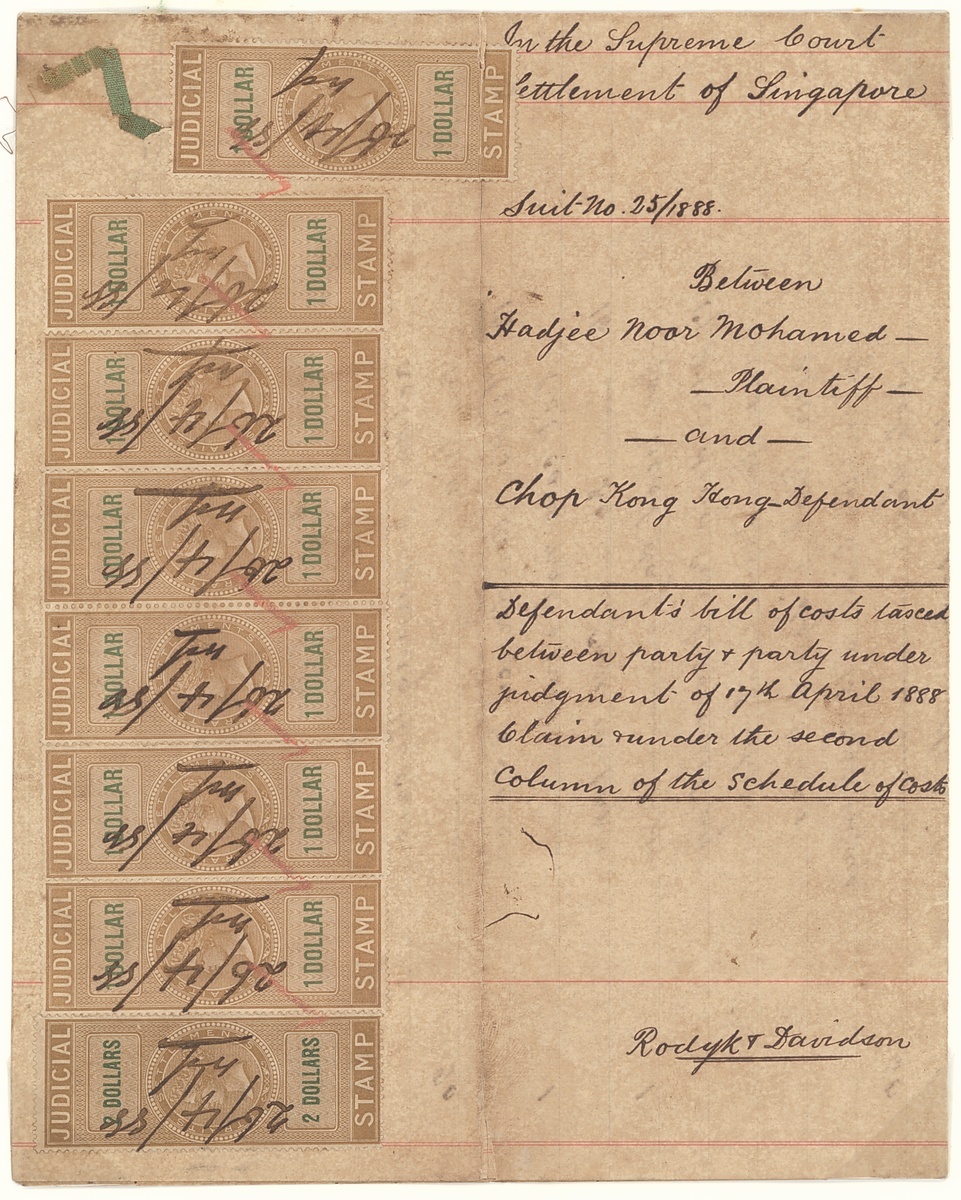 In the Supreme Court
Settlement of Singapore
Suit No. 25/1888.
Between
Hadjee Noor Mohamed —
— Plaintiff —
— and —
Chop Kong Hong - Defendant
Defendant's bill of costs taxed
between party & party under
judgment of 17th April 1888
Claim & under the second
Column of the Schedule of Costs
Rodyk & Davidson
JUDICIAL 1 DOLLAR 1 DOLLAR STAMP
26/4/88
JUDICIAL 1 DOLLAR 1 DOLLAR STAMP
26/4/88
JUDICIAL 1 DOLLAR 1 DOLLAR STAMP
26/4/88
JUDICIAL 1 DOLLAR 1 DOLLAR STAMP
26/4/88
JUDICIAL 1 DOLLAR 1 DOLLAR STAMP
26/4/88
JUDICIAL 1 DOLLAR 1 DOLLAR STAMP
26/4/88
JUDICIAL 1 DOLLAR 1 DOLLAR STAMP
26/4/88
JUDICIAL 2 DOLLARS 2 DOLLARS STAMP
26/4/88